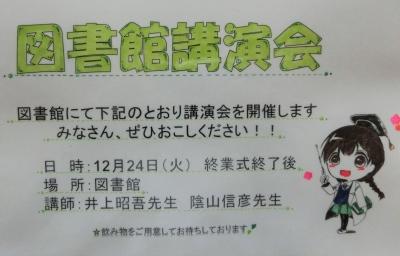 図書館講演会
図書館にて下記のとおり講演会を開催します
みなさん、ぜひおこしください！！
日　時：12月24日（火）　終業式終了後
場　所：図書館
講師：井上昭吾先生　陰山信彦先生
★飲み物をご用意してお待ちしております。